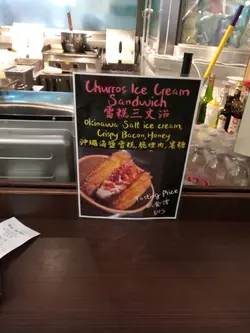 Churros Ice Cream
Sandwich
雪糕三文治
Okinawa Salt ice cream,
Crispy Bacon, Honey
沖繩海鹽雪糕,脆煙肉,蜜糖
Tasting Price